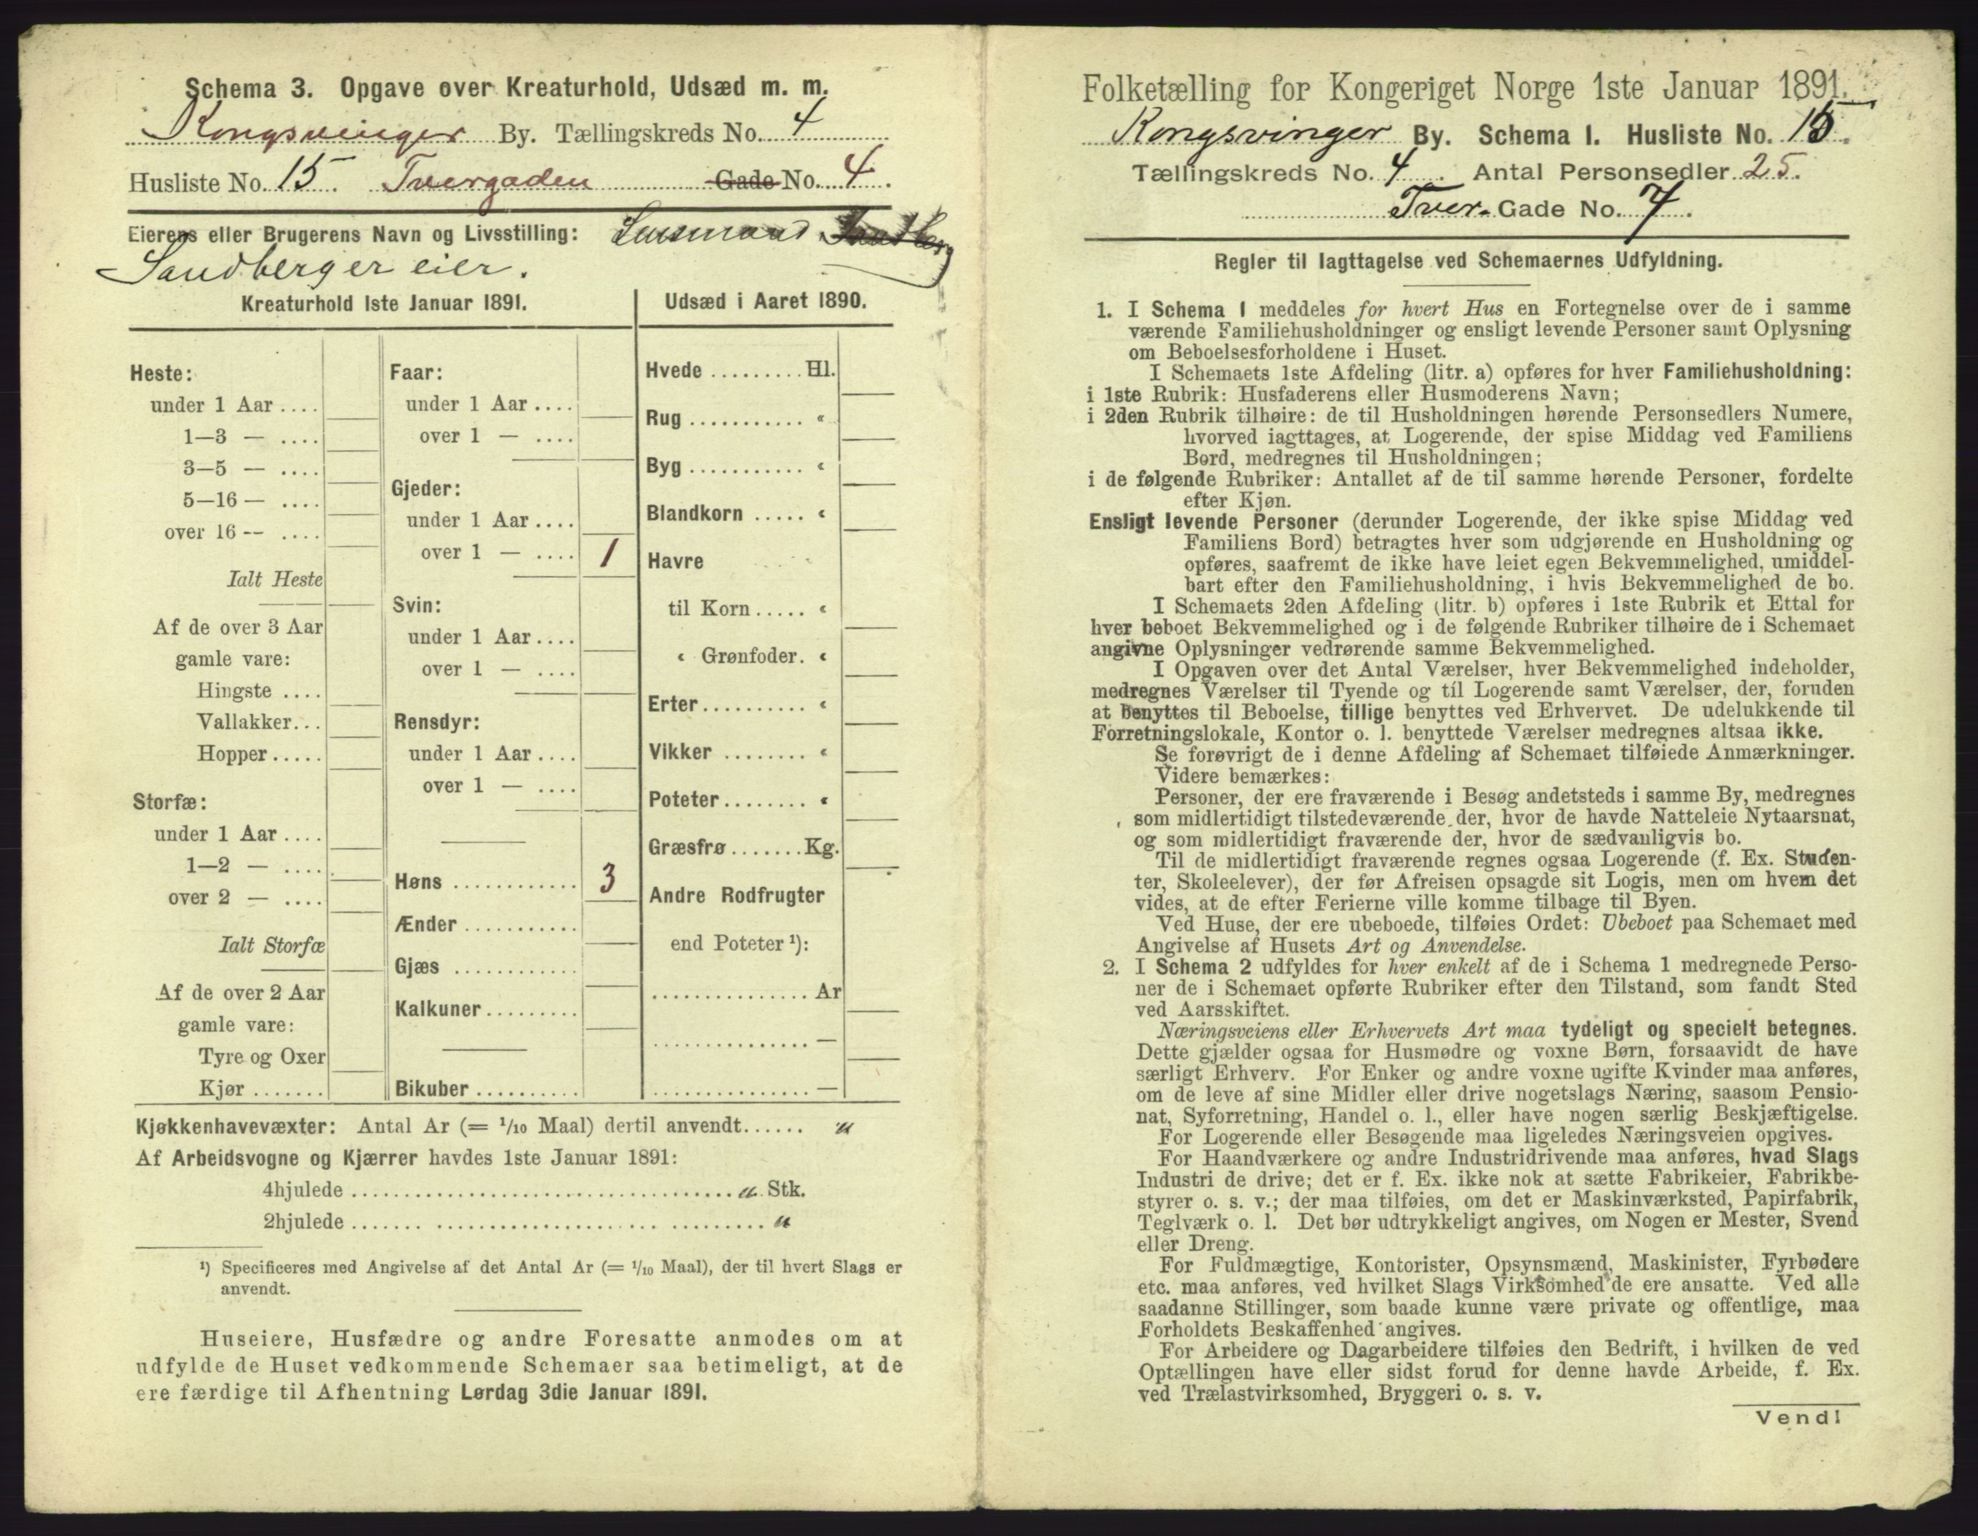 Schema 3. Opgave over Kreaturhold, Udsæd m. m.
Kongsvinger By. Tællingskreds No. 4
Husliste No. 15. Tvergaden Gade No. 4.
Eierens eller Brugerens Navn og Livsstilling: Lensmand Sandberg
Sandberger eier.
Kreaturhold 1ste Januar 1891.
Heste:
under 1 Aar ....
1—3 — ....
3—5 — ....
5—16 — ....
over 16 — ....
Ialt Heste
Af de over 3 Aar
gamle vare:
Hingste ....
Vallakker...
Hopper.....
Storfæ:
under 1 Aar ....
1—2 — ....
over 2 — ....
Ialt Storfæ
Af de over 2 Aar
gamle vare:
Tyre og Oxer
Kjør.......
Faar:
under 1 Aar ....
over 1 — ....
Gjeder:
under 1 Aar ....
over 1 — .... 1
Svin:
under 1 Aar ....
over 1 — ....
Rensdyr:
under 1 Aar ....
over 1 — ....
Høns ............ 3
Ænder ...........
Gjæs ............
Kalkuner .........
Bikuber ..........
Udsæd i Aaret 1890.
Hvede .........Hl.
Rug ........... «
Byg ........... «
Blandkorn ..... «
Havre
til Korn ..... «
« Grønfoder. «
Erter.......... «
Vikker ........ «
Poteter........ «
Græsfrø.......Kg.
Andre Rodfrugter
end Poteter ¹):
............... Ar
............... —
............... —
Kjøkkenhavevæxter: Antal Ar (= 1/10 Maal) dertil anvendt...... "
Af Arbeidsvogne og Kjærrer havdes 1ste Januar 1891:
4hjulede .................................... " Stk.
2hjulede .................................... "
¹) Specificeres med Angivelse af det Antal Ar (= 1/10 Maal), der til hvert Slags er
anvendt.
Huseiere, Husfædre og andre Foresatte anmodes om at
udfylde de Huset vedkommende Schemaer saa betimeligt, at de
ere færdige til Afhentning Lørdag 3die Januar 1891.
Folketælling for Kongeriget Norge 1ste Januar 1891.
Kongsvinger By. Schema 1. Husliste No. 15.
Tællingskreds No. 4. Antal Personsedler 25.
Tver- Gade No. 7.
Regler til Iagttagelse ved Schemaernes Udfyldning.
1. I Schema 1 meddeles for hvert Hus en Fortegnelse over de i samme
værende Familiehusholdninger og ensligt levende Personer samt Oplysning
om Beboelsesforholdene i Huset.
I Schemaets 1ste Afdeling (litr. a) opføres for hver Familiehusholdning:
i 1ste Rubrik: Husfaderens eller Husmoderens Navn;
i 2den Rubrik tilhøire: de til Husholdningen hørende Personsedlers Numere,
hvorved iagttages, at Logerende, der spise Middag ved Familiens
Bord, medregnes til Husholdningen;
i de følgende Rubriker: Antallet af de til samme hørende Personer, fordelte
efter Kjøn.
Ensligt levende Personer (derunder Logerende, der ikke spise Middag ved
Familiens Bord) betragtes hver som udgjørende en Husholdning og
opføres, saafremt de ikke have leiet egen Bekvemmelighed, umiddel-
bart efter den Familiehusholdning, i hvis Bekvemmelighed de bo.
I Schemaets 2den Afdeling (litr. b) opføres i 1ste Rubrik et Ettal for
hver beboet Bekvemmelighed og i de følgende Rubriker tilhøire de i Schemaet
angivne Oplysninger vedrørende samme Bekvemmelighed.
I Opgaven over det Antal Værelser, hver Bekvemmelighed indeholder,
medregnes Værelser til Tyende og til Logerende samt Værelser, der, foruden
at benyttes til Beboelse, tillige benyttes ved Erhvervet. De udelukkende til
Forretningslokale, Kontor o. l. benyttede Værelser medregnes altsaa ikke.
Se forøvrigt de i denne Afdeling af Schemaet tilføiede Anmærkninger.
Videre bemærkes:
Personer, der ere fraværende i Besøg andetsteds i samme By, medregnes
som midlertidigt tilstedeværende der, hvor de havde Natteleie Nytaarsnat,
og som midlertidigt fraværende der, hvor de sædvanligvis bo.
Til de midlertidigt fraværende regnes ogsaa Logerende (f. Ex. Studen-
ter, Skoleelever), der før Afreisen opsagde sit Logis, men om hvem det
vides, at de efter Ferierne ville komme tilbage til Byen.
Ved Huse, der ere ubeboede, tilføies Ordet: Ubeboet paa Schemaet med
Angivelse af Husets Art og Anvendelse.
2. I Schema 2 udfyldes for hver enkelt af de i Schema 1 medregnede Perso-
ner de i Schemaet opførte Rubriker efter den Tilstand, som fandt Sted
ved Aarsskiftet.
Næringsveiens eller Erhvervets Art maa tydeligt og specielt betegnes.
Dette gjælder ogsaa for Husmødre og voxne Børn, forsaavidt de have
særligt Erhverv. For Enker og andre voxne ugifte Kvinder maa anføres,
om de leve af sine Midler eller drive nogetslags Næring, saasom Pensio-
nat, Syforretning, Handel o. l., eller have nogen særlig Beskjæftigelse.
For Logerende eller Besøgende maa ligeledes Næringsveien opgives.
For Haandværkere og andre Industridrivende maa anføres, hvad Slags
Industri de drive; det er f. Ex. ikke nok at sætte Fabrikeier, Fabrikbe-
styrer o. s. v.; der maa tilføies, om det er Maskinværksted, Papirfabrik,
Teglværk o. l. Det bør udtrykkeligt angives, om Nogen er Mester, Svend
eller Dreng.
For Fuldmægtige, Kontorister, Opsynsmænd, Maskinister, Fyrbødere
etc. maa anføres, ved hvilket Slags Virksomhed de ere ansatte. Ved alle
saadanne Stillinger, som baade kunne være private og offentlige, maa
Forholdets Beskaffenhed angives.
For Arbeidere og Dagarbeidere tilføies den Bedrift, i hvilken de ved
Optællingen have eller sidst forud for denne havde Arbeide, f. Ex.
ved Trælastvirksomhed, Bryggeri o. s. v.
Vend!